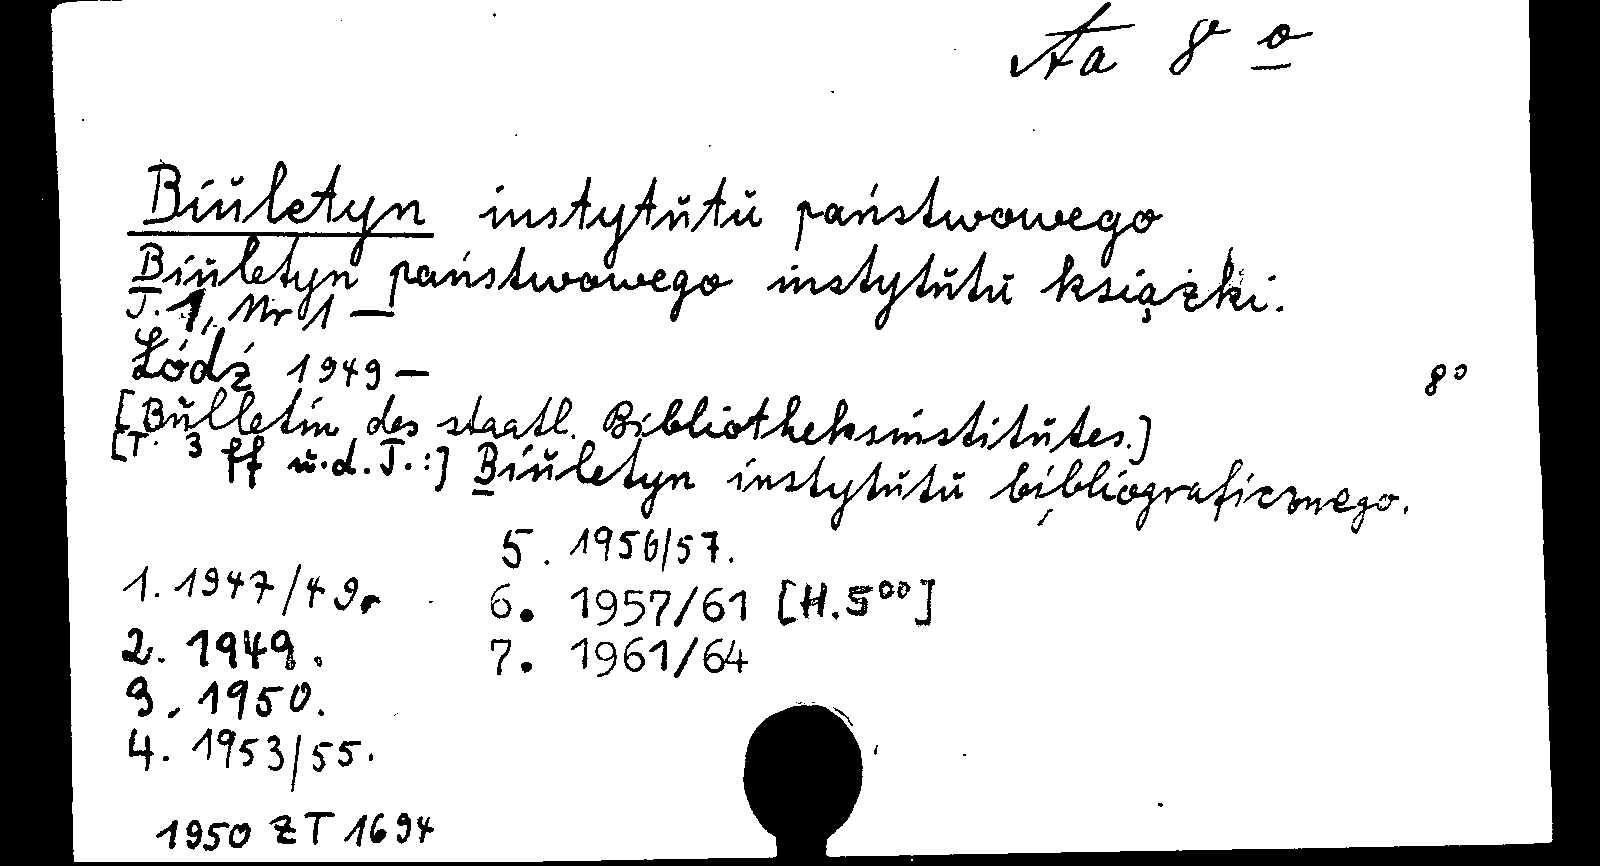 Aa 8 o
Biuletyn instytutu państwowego
Biuletyn państwowego instytutu książki.
T. 1, Nr 1 —
Łódź 1949 —
8°
[Bulletin des staatl. Bibliotheksinstitutes.]
[T. 3 ff u. d. T. :] Biuletyn instytutu bibliograficznego.
1. 1947/49.
2. 1949.
3. 1950.
4. 1953/55.
5. 1956/57.
6. 1957/61 [H.5°°]
7. 1961/64
1950 ZT 1694